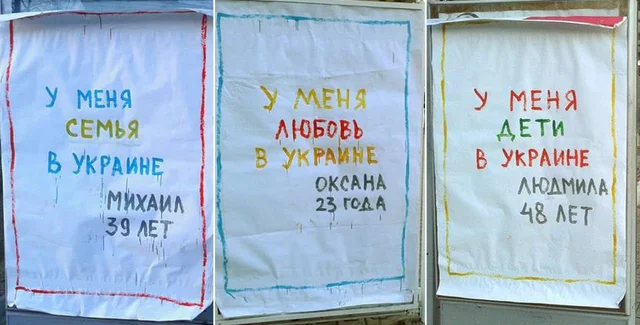 У МЕНЯ
СЕМЬЯ
В УКРАИНЕ
МИХАИЛ
39 ЛЕТ
У МЕНЯ
ЛЮБОВЬ
В УКРАИНЕ
ОКСАНА
23 ГОДА
У МЕНЯ
ДЕТИ
В УКРАИНЕ
ЛЮДМИЛА
48 ЛЕТ